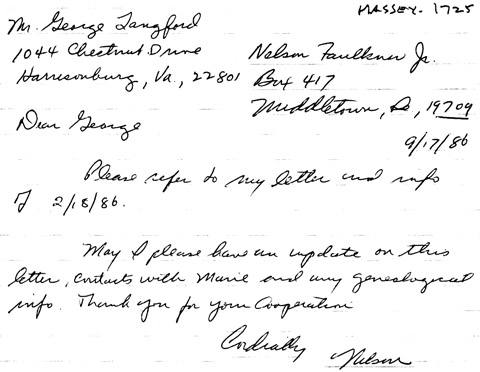 MASSEY-1725
Mr. George Langford
1044 Chestnut Drive
Harrisonburg, Va, 22801
Nelson Faulkner Jr.
Box 417
Middletown, De, 19709
9/17/86
Dear George
Please refer to my letter and info
of 2/18/86.
May I please have an update on this
letter, contacts with Marie and any genealogical
info. Thank you for your Cooperation
Cordially
Nelson